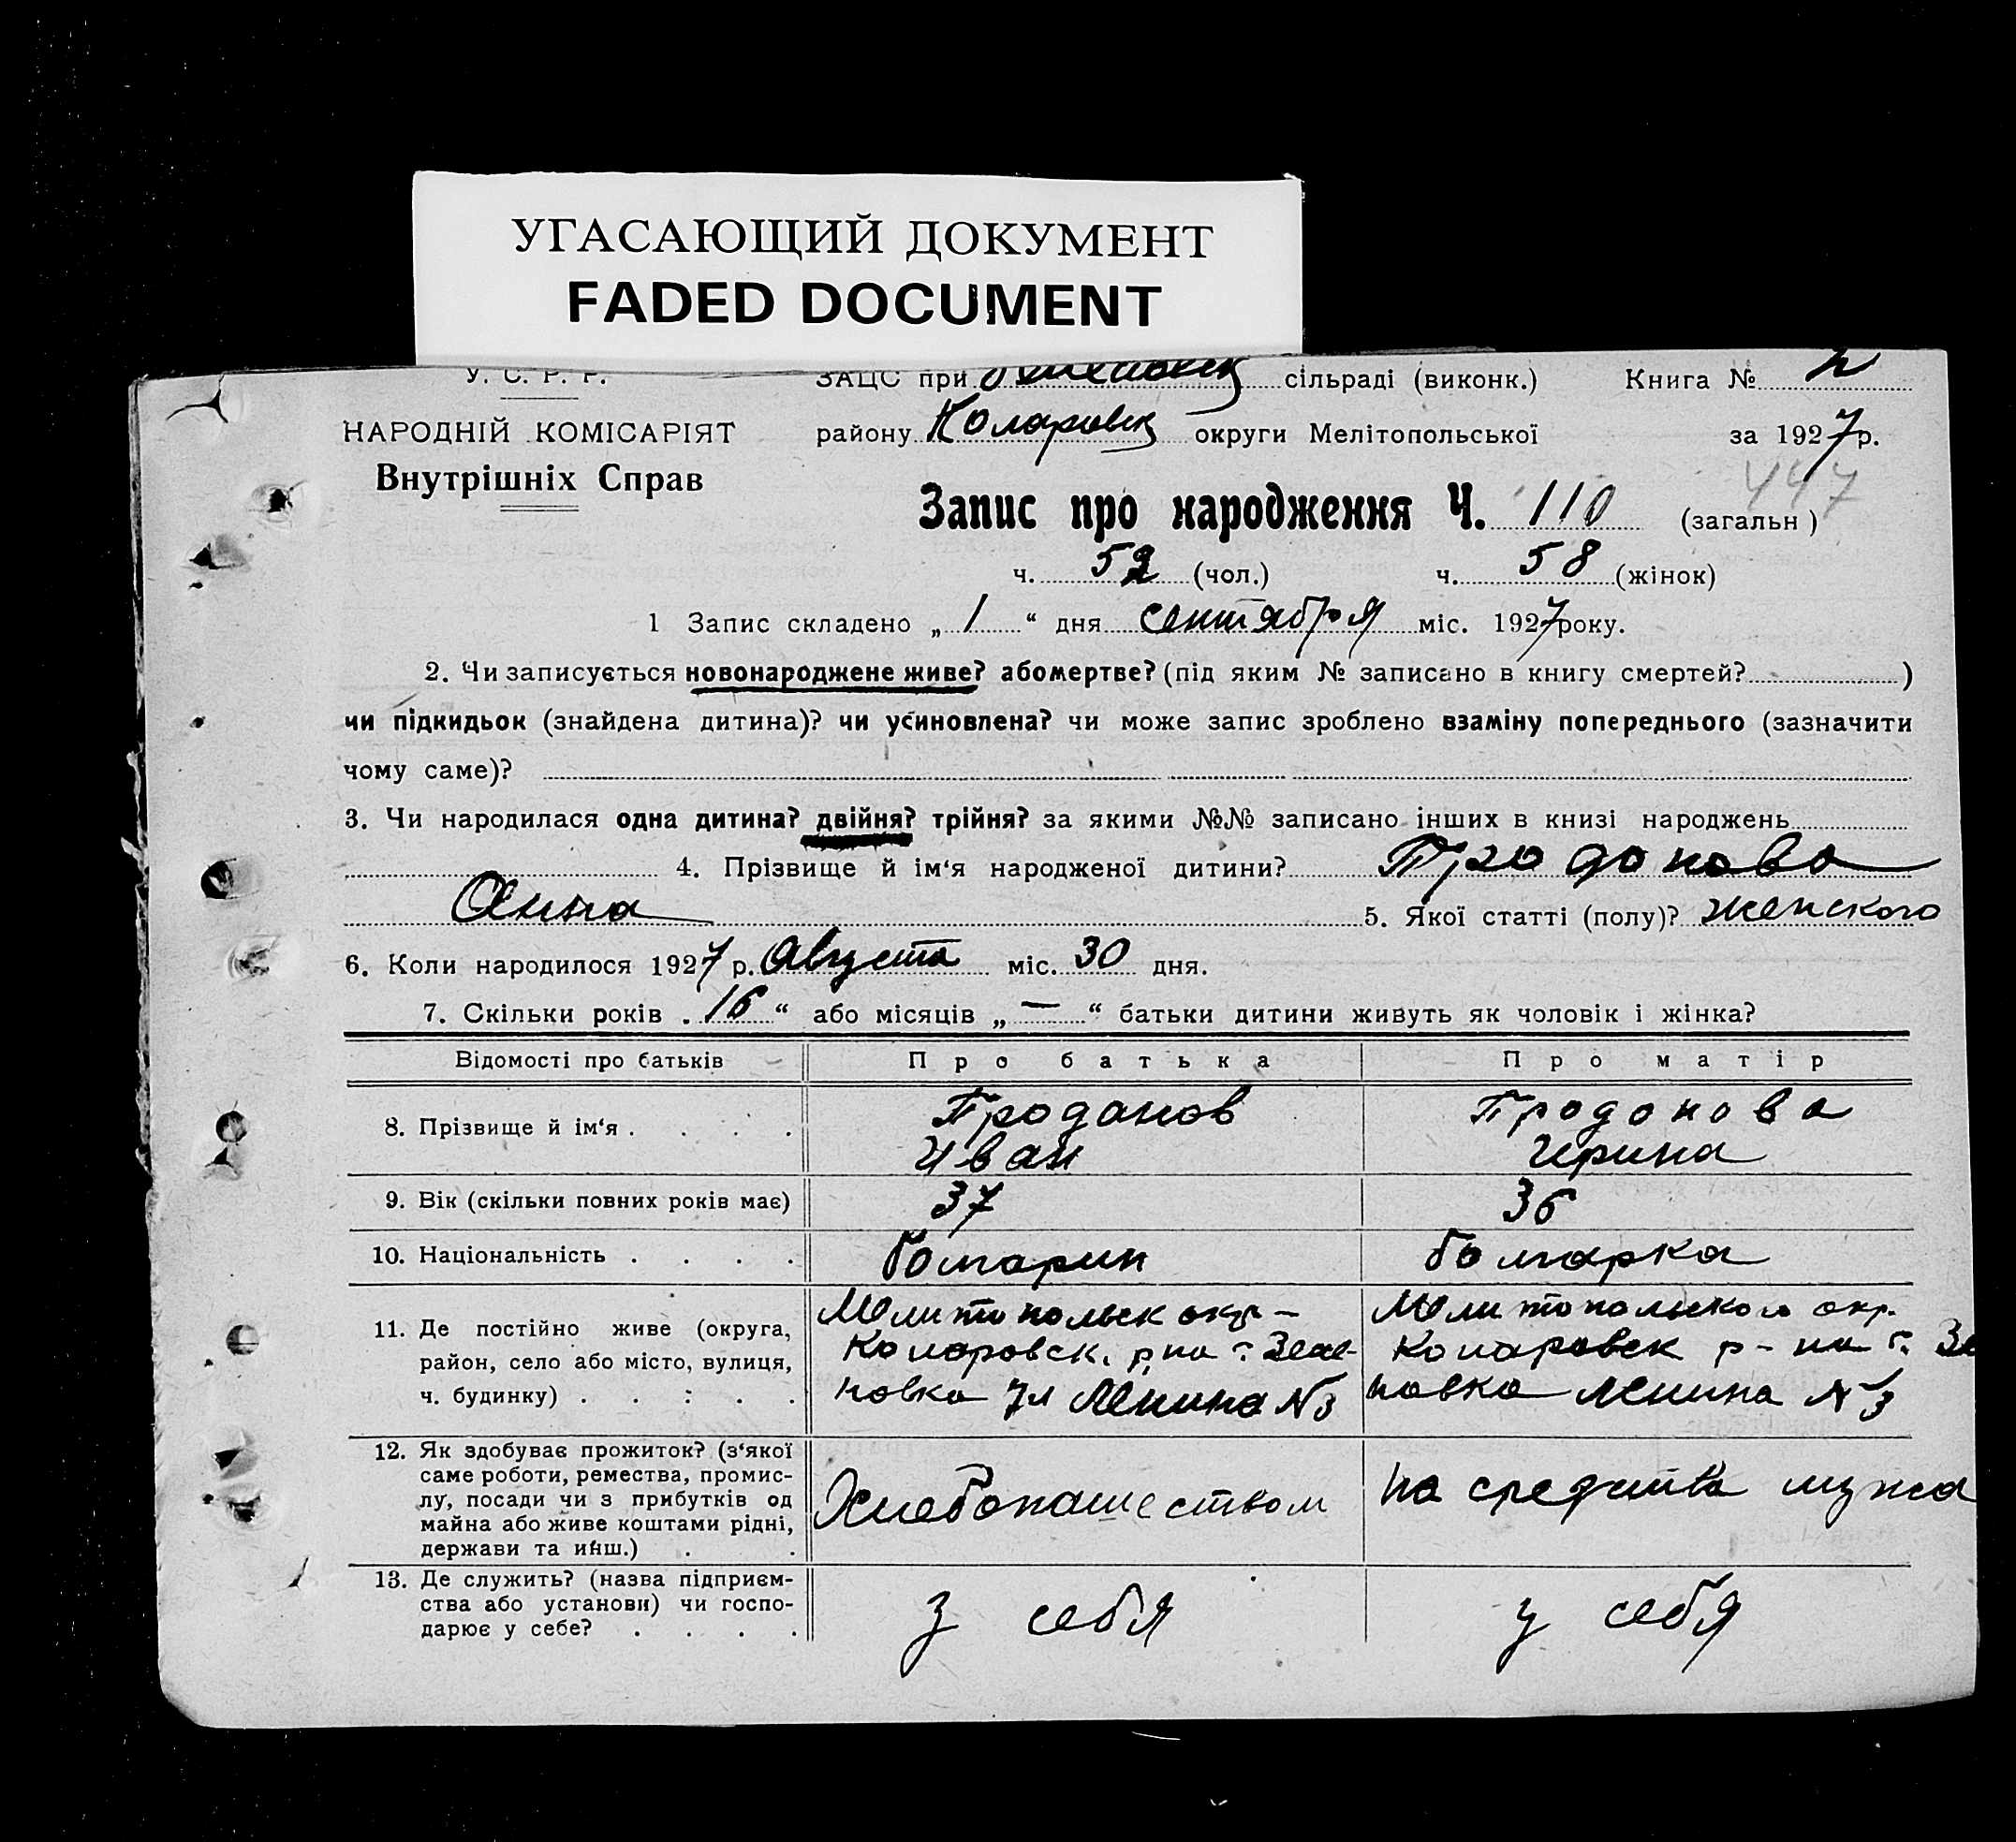 УГАСАЮЩИЙ ДОКУМЕНТ
FADED DOCUMENT
У. С. Р. Р. ЗАЦС при сільраді (виконк.) Книга № 2
НАРОДНІЙ КОМІСАРІЯТ району Коларовск округи Мелітопольської за 1927 р.
Внутрішніх Справ
447
Запис про народження Ч. 110 (загальн)
ч. 52 (чол.) ч. 58 (жінок)
1 Запис складено „1“ дня сентября міс. 1927 року.
2. Чи записується новонароджене живе? або мертве? (під яким № записано в книгу смертей? )
чи підкидьок (знайдена дитина)? чи усиновлена? чи може запис зроблено взаміну попереднього (зазначити
чому саме)?
3. Чи народилася одна дитина? двійня? трійня? за якими №№ записано інших в книзі народжень
4. Прізвище й ім‘я народженої дитини? Продонова
Анна 5. Якої статті (полу)? женского
6. Коли народилося 1927 р. Августа міс. 30 дня.
7. Скільки років „16“ або місяців „—“ батьки дитини живуть як чоловік і жінка?
Відомості про батьків Про батька Про матір
8. Прізвище й ім‘я . . . . Проданов Продонова
Иван Ирина
9. Вік (скільки повних років має) 37 36
10. Національність . . . . болгарин болгарка
11. Де постійно живе (округа, район, село або місто, вулиця, ч. будинку) . . : . .
Мелитопольск окр-
Коларовск. р-на с. Зеле-
новка ул Ленина №3
Мелитопольского окр.
Коларовск р-на с. Зе
новка Ленина №3
12. Як здобуває прожиток? (з‘якої
саме роботи, ремества, промис-
лу, посади чи з прибутків од
майна або живе коштами рідні,
держави та инш.) . .
Хлебопашеством на средства мужа
13. Де служить? (назва підприєм-
ства або установи) чи госпо-
дарює у себе? . . . .
у себя у себя